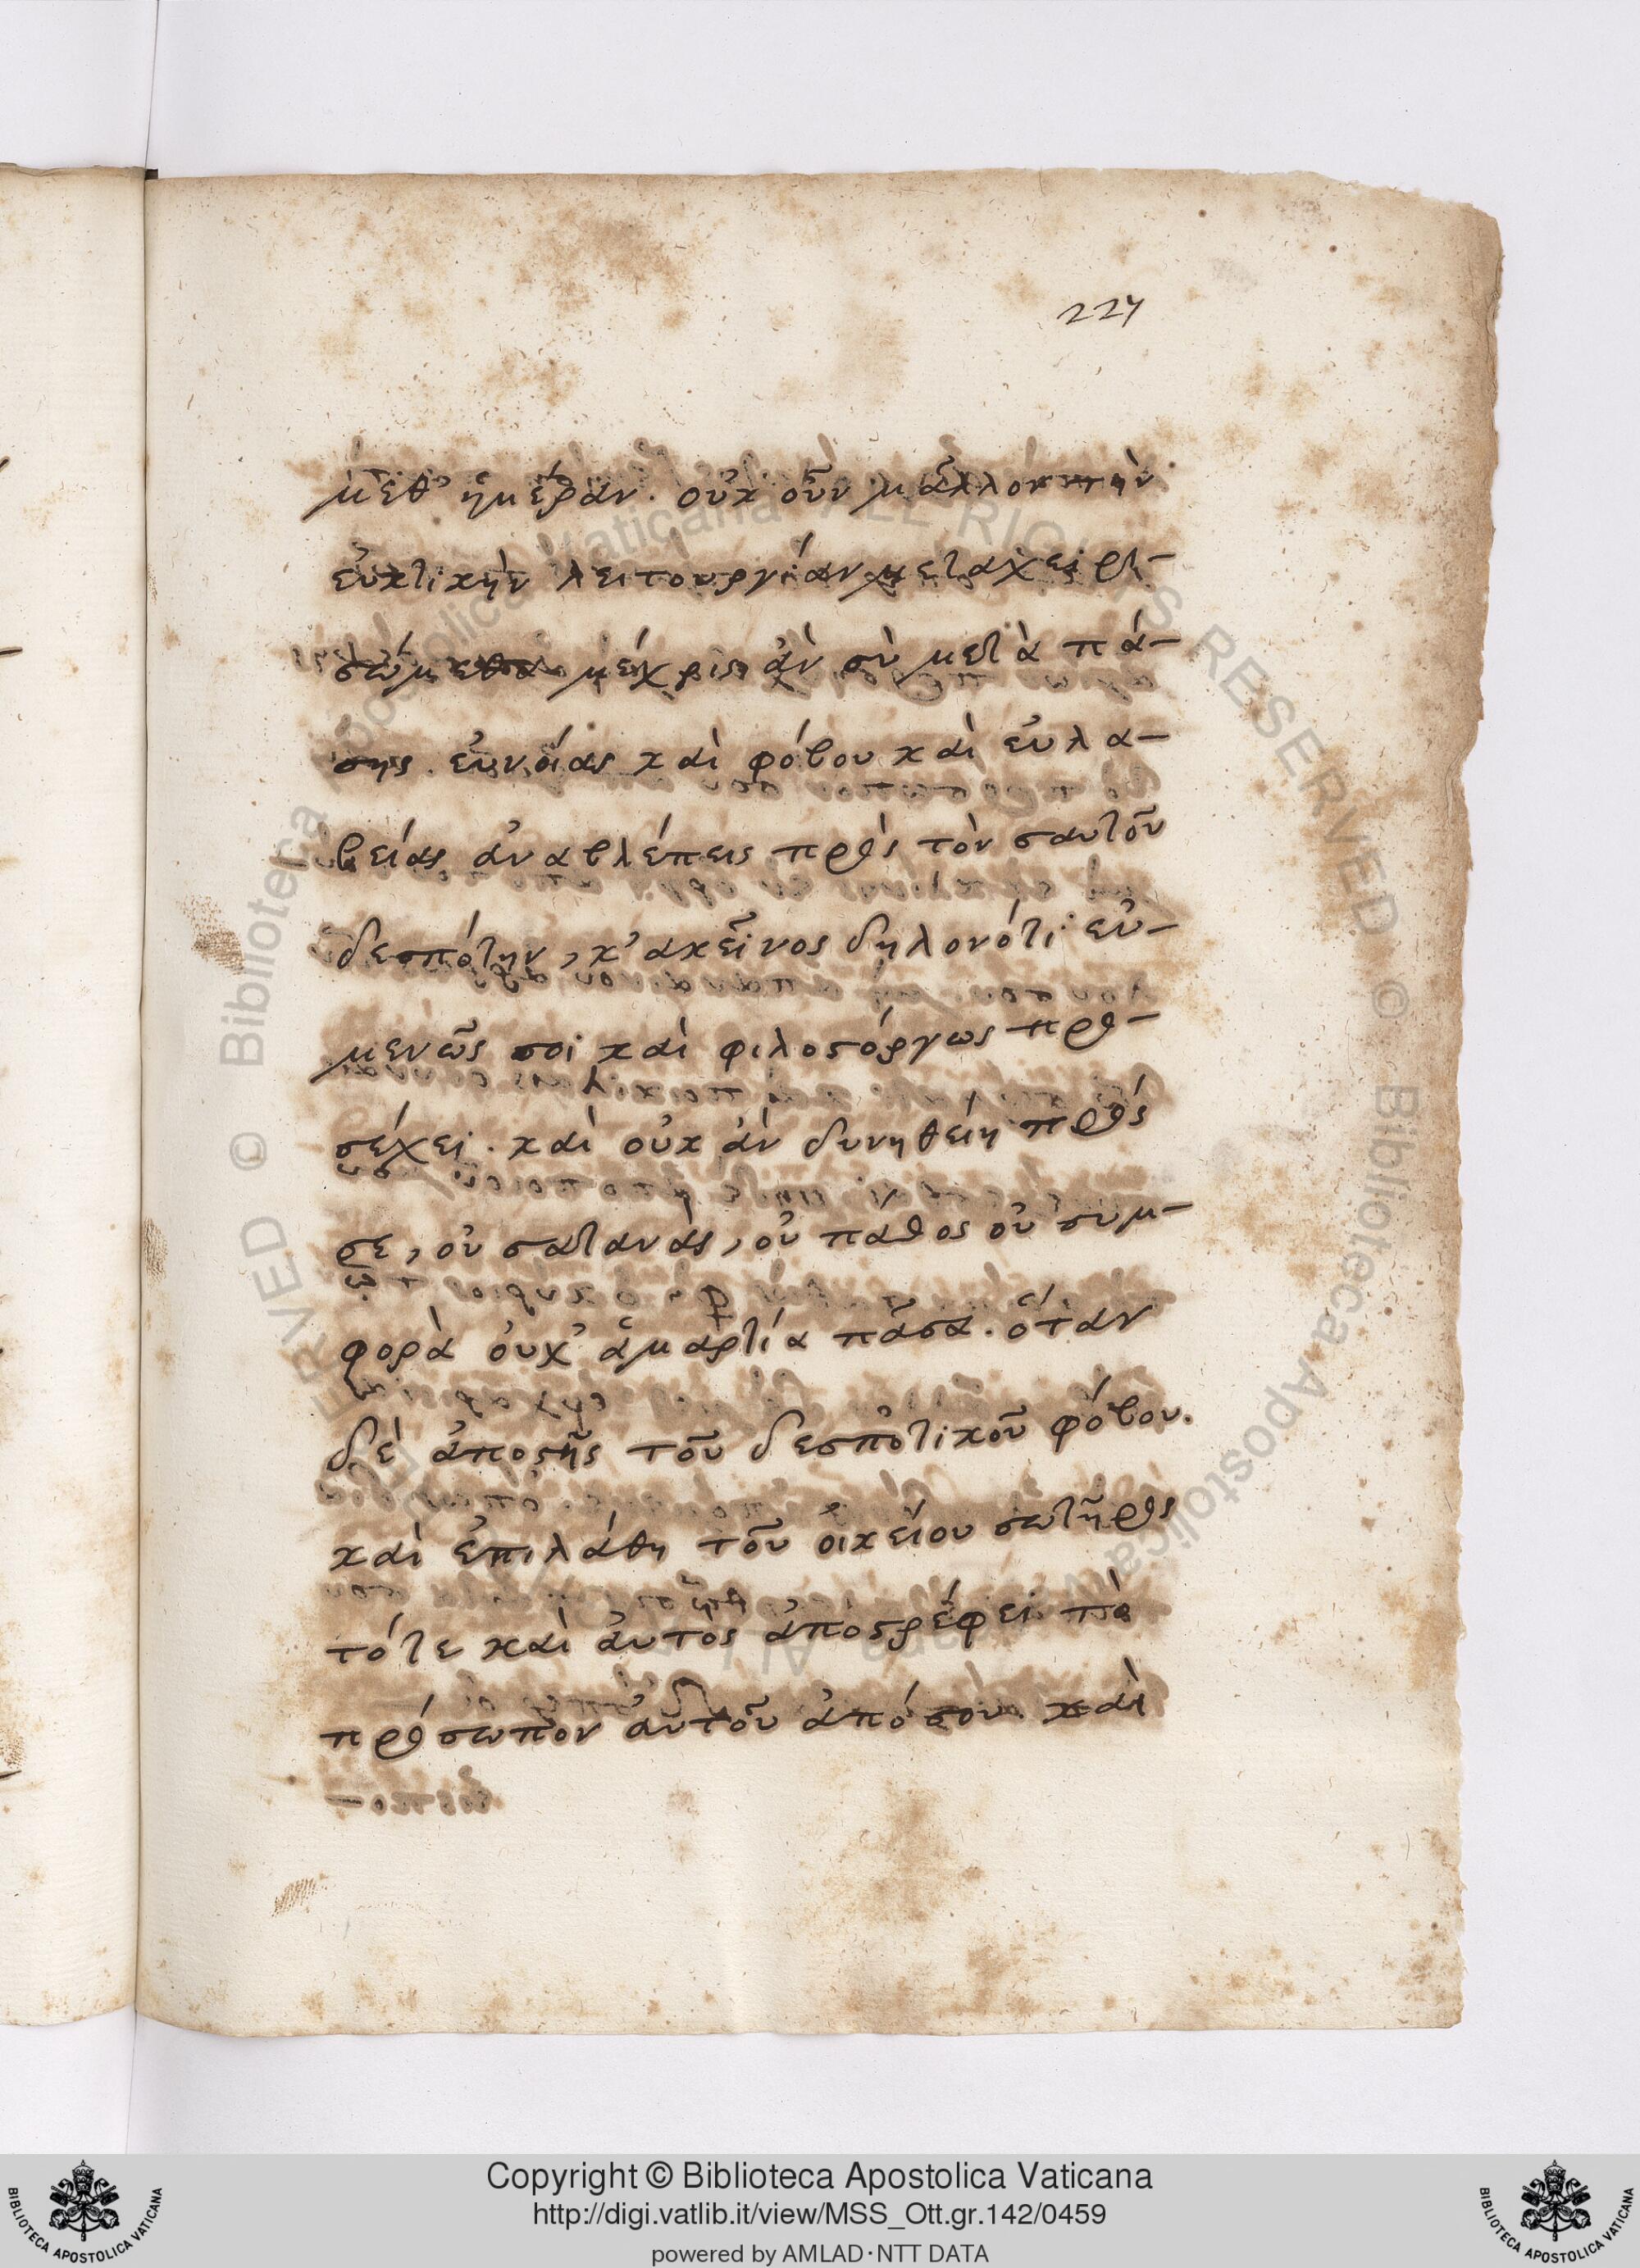 227
μεθ' ἡμέραν. οὐχ οὖν μᾶλλον τὴν
εὐκτικὴν λειτουργίαν μεταχειρι-
σώμεθα μέχρις ἂν σὺ μετὰ πά-
σης εὐνοίας καὶ φόβου καὶ εὐλα-
βείας ἀναβλέπεις πρὸς τὸν σαυτοῦ
δεσπότην, κ' ἀκεῖνος δηλονότι εὐ-
μενῶς σοι καὶ φιλοστόργως προ-
σέχει. καὶ οὐκ ἂν δυνηθείη πρός
σε, οὐ σατανάς, οὐ παθος οὐ συμ-
φορὰ οὐχ' ἁμαρτία πᾶσα. ὅταν
δὲ ἀποστῇς τοῦ δεσποτικοῦ φόβου.
καὶ ἐπιλάθη τοῦ οἰκείου σωτῆρος
τότε καὶ ἀυτος ἀποστρέφει τὸ
πρόσωπον ἀυτοῦ ἀπό σου. καὶ
© Biblioteca Apostolica Vaticana ALL RIGHTS RESERVED © Biblioteca Apostolica Vaticana ALL RIGHTS RESERVED
BIBLIOTECA APOSTOLICA VATICANA
Copyright © Biblioteca Apostolica Vaticana
http://digi.vatlib.it/view/MSS_Ott.gr.142/0459
powered by AMLAD·NTT DATA
BIBLIOTECA APOSTOLICA VATICANA